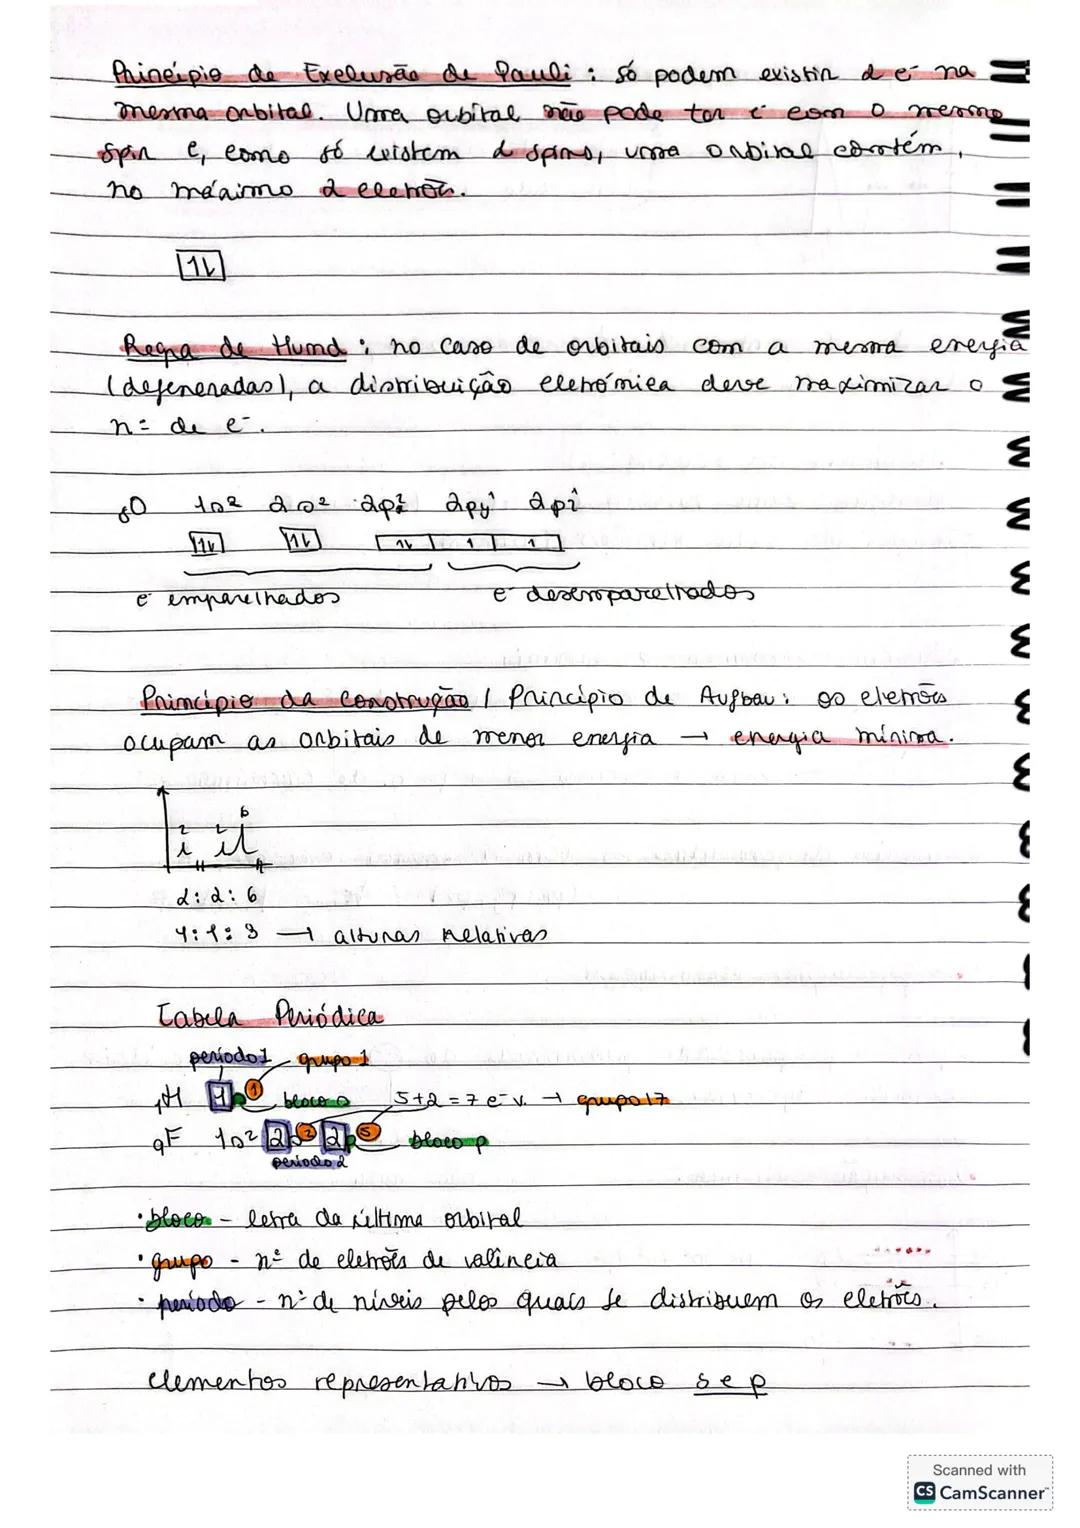 Princípio de Exclusão de Pauli : só podem existir 2 e⁻ na
mesma orbital. Uma orbital não pode ter e⁻ com o mesmo
spin e, como só existem 2 spins, uma orbital contém,
no máximo 2 eletrões.
↑↓
Regra de Hund : no caso de orbitais com a mesma energia
(degeneradas), a distribuição eletrónica deve maximizar o
nº de e⁻.
₈O 1s² 2s² 2px² 2py¹ 2pz¹
↑↓ ↑↓ ↑↓ ↑ ↑
e⁻ emparelhados e⁻ desemparelhados
Princípio da construção / Princípio de Aufbau : os eletrões
ocupam as orbitais de menor energia → energia mínima.
2 2 6
2 : 2 : 6
1 : 1 : 3 → alturas relativas
Tabela Periódica
período 1 grupo 1
₁H 1s¹ bloco s 5+2 = 7 e⁻ v. → grupo 17
₉F 1s² 2s² 2p⁵ bloco p
período 2
• bloco - letra da última orbital
• grupo - nº de eletrões de valência
• período - nº de níveis pelos quais se distribuem os eletrões.
elementos representativos → bloco s e p
Scanned with
CS CamScanner